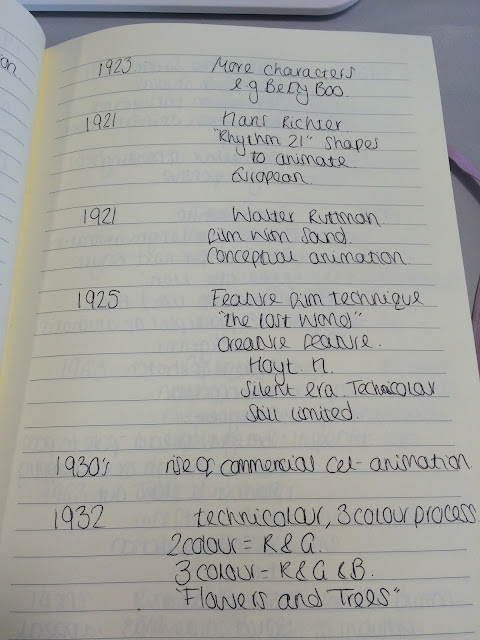 1923 More characters
e.g Betty Boo.
1921 Hans Richter
"Rhythm 21" Shapes
to animate.
European
1921 Walter Ruttman
film with Sand.
Conceptual animation
1925 Feature film technique
"The Lost World"
creature feature.
Hoyt. H.
Silent era. Technicolar
Still limited.
1930's rise of commercial cel-animation
1932 technicolour, 3 colour process
2 colour = R & G.
3 colour = R & G & B.
"Flowers and Trees"